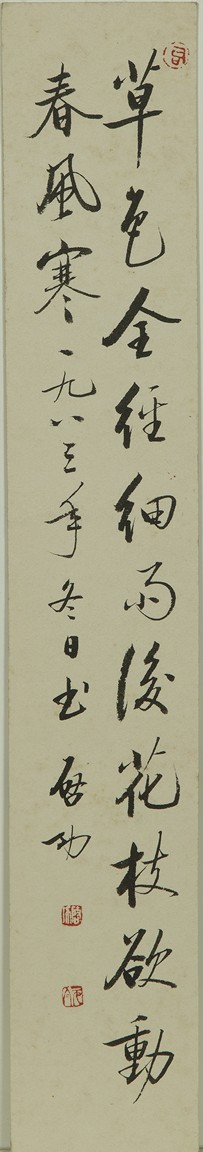 草色全經細雨後花枝欲動
春風寒一九八三年冬日书啟功